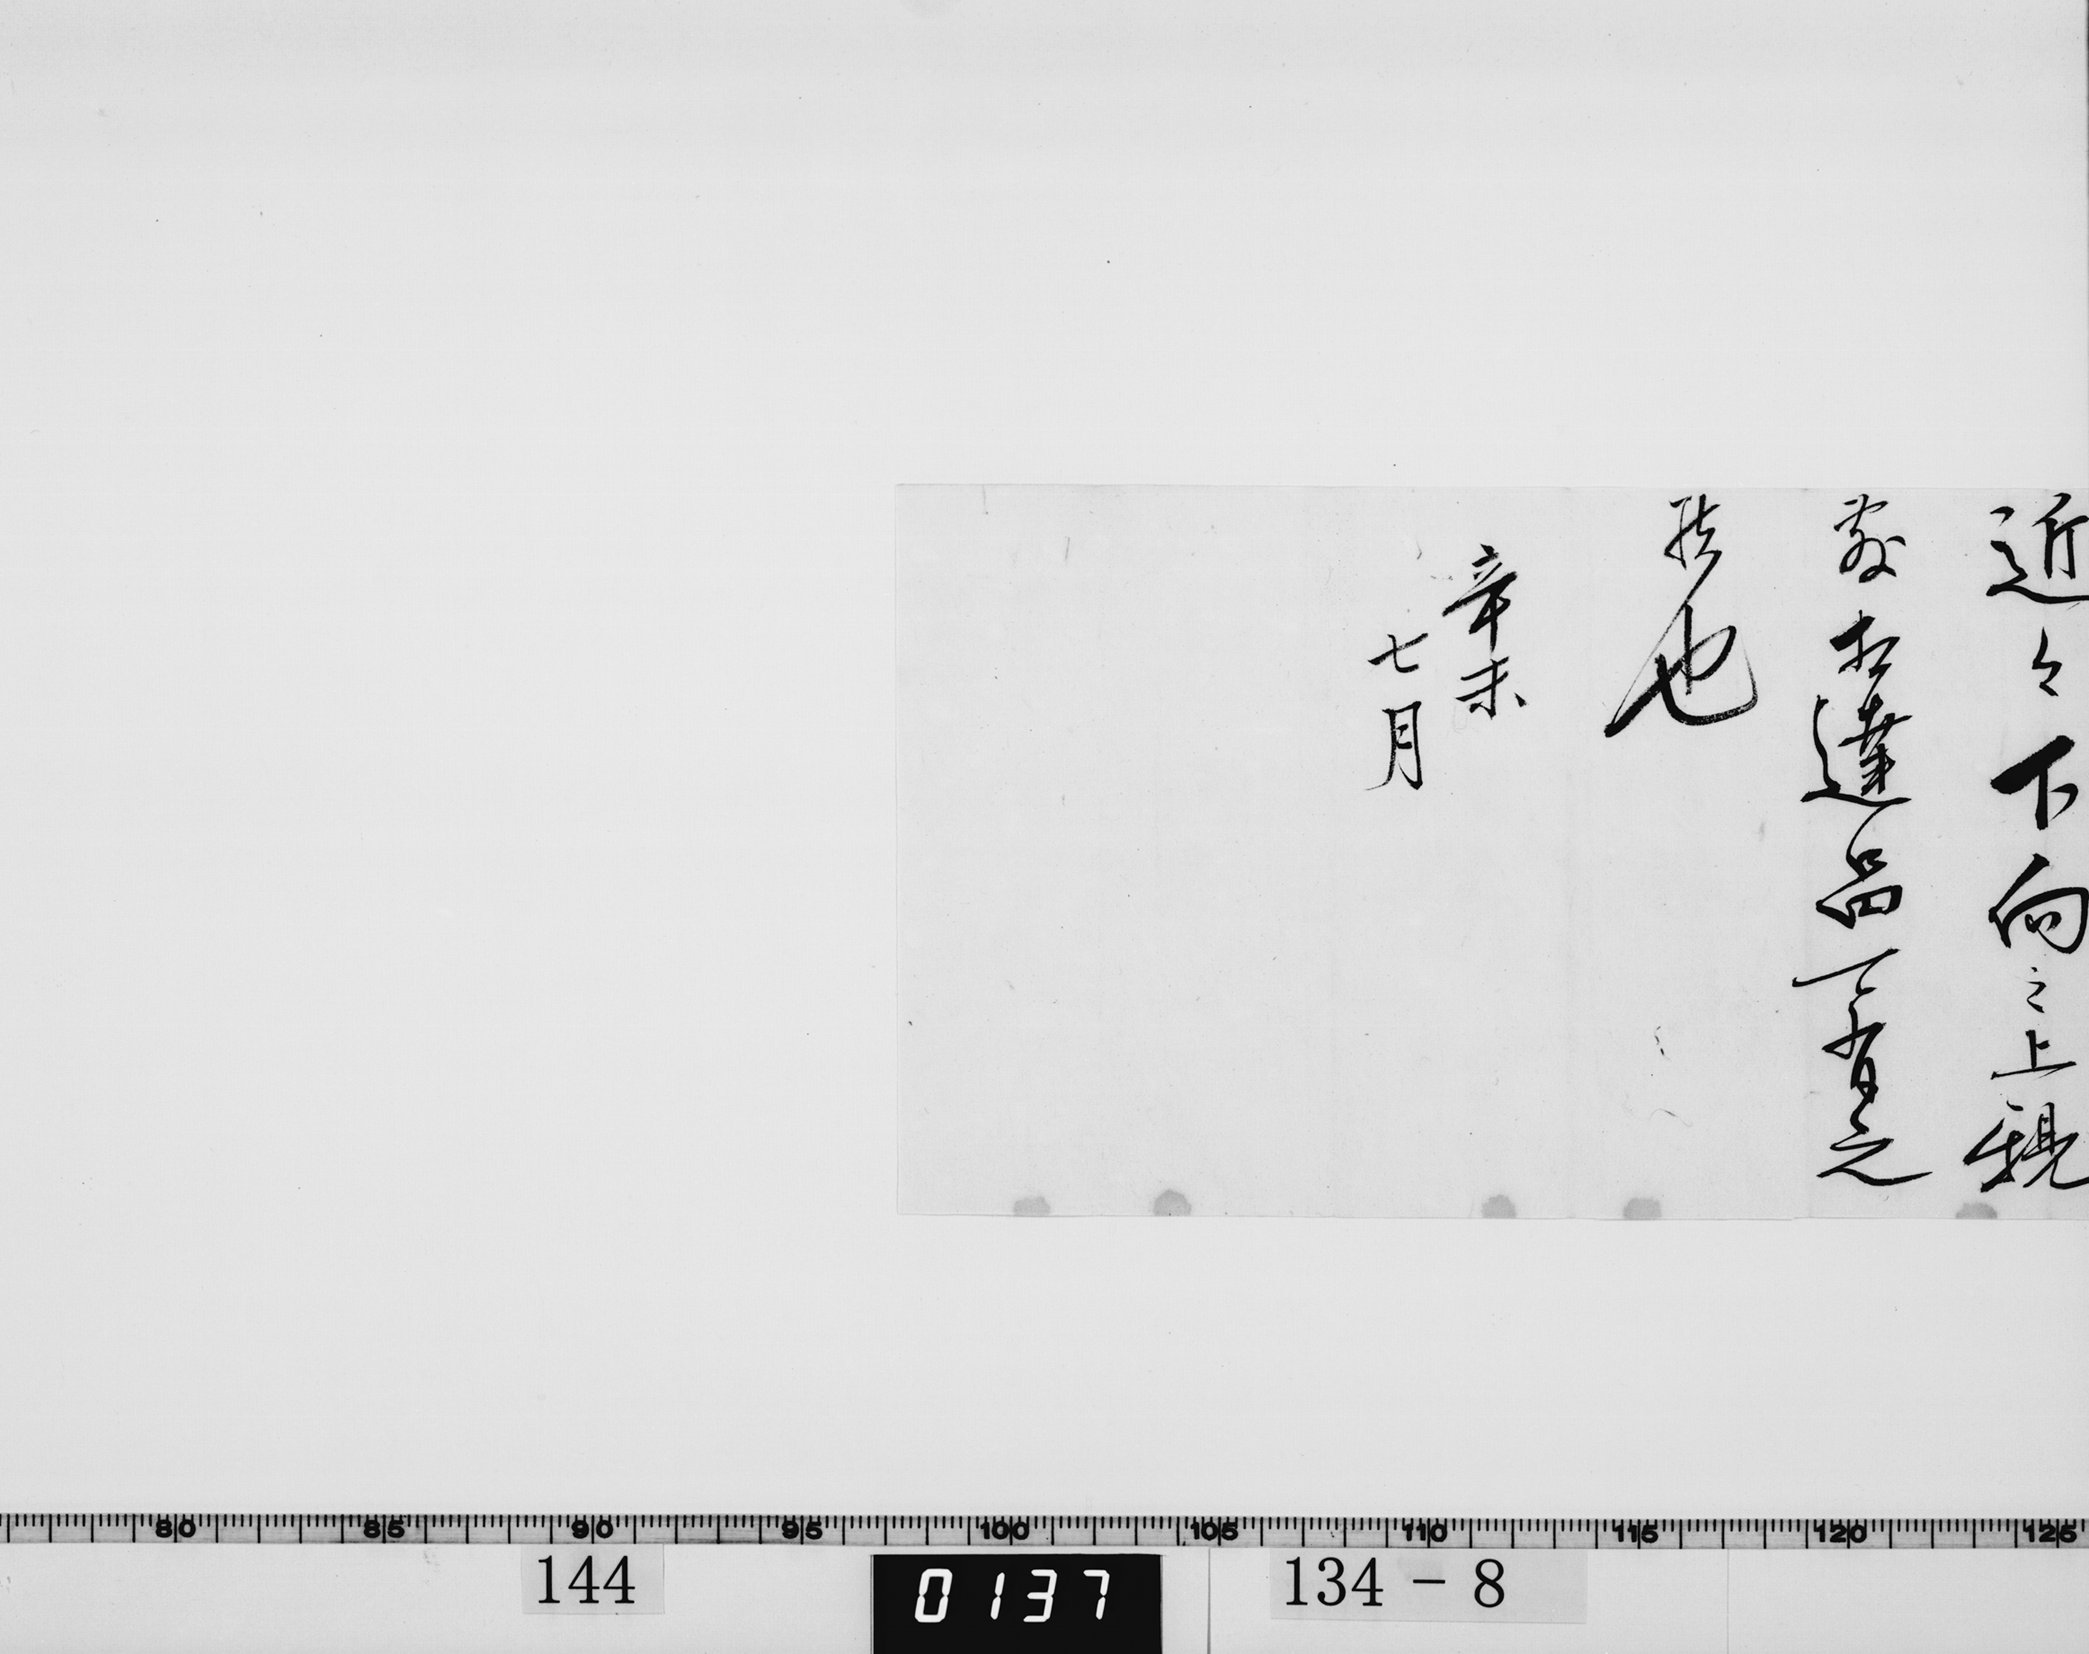 近々下向之上親
敷相達品可有之
候也
辛未
七月
80 85 90 95 100 105 110 115 120 125
144
0137
134-8